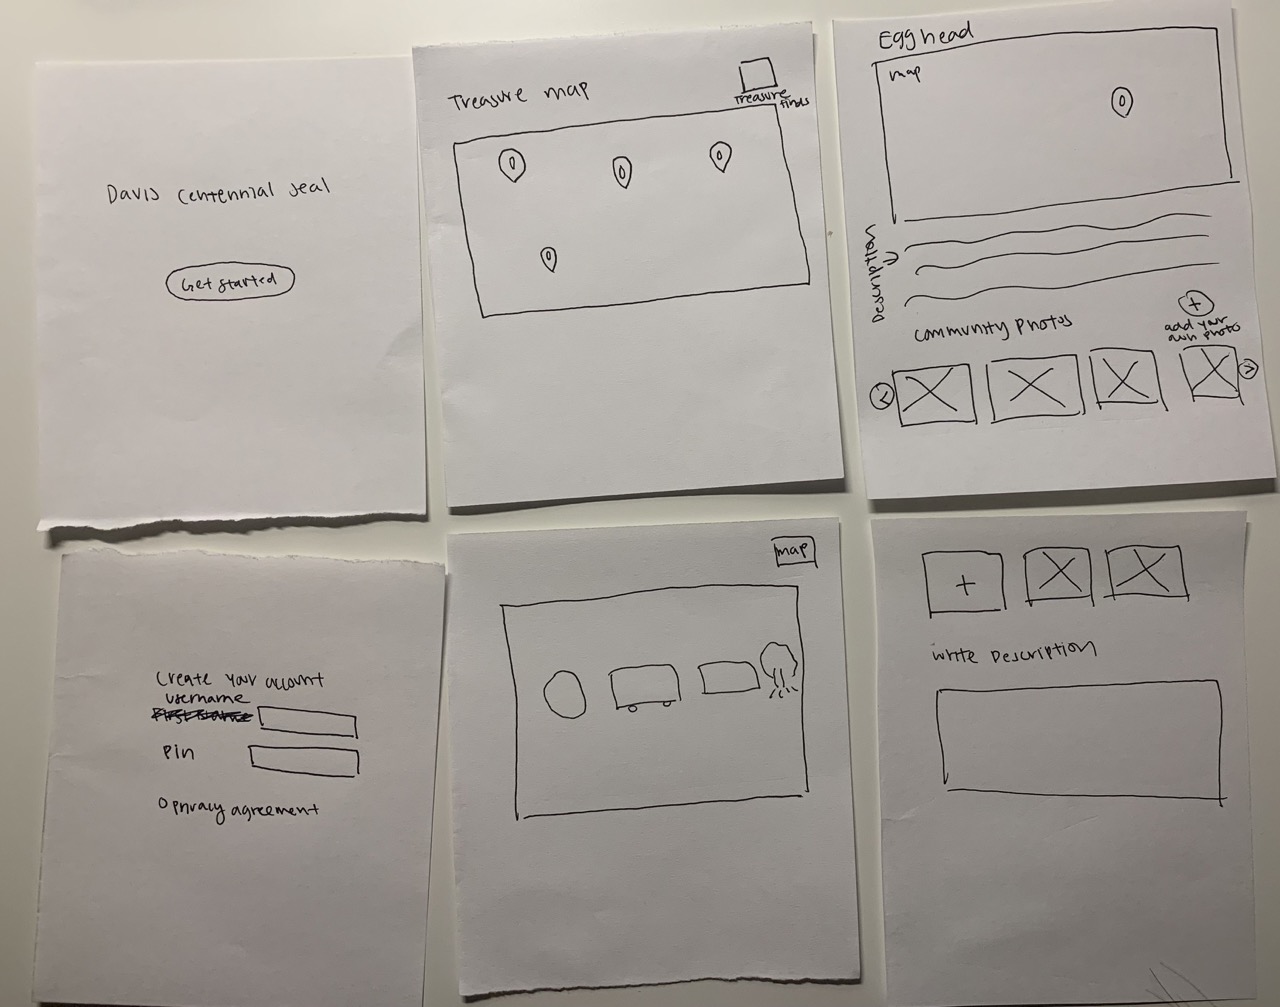 Davis Centennial Seal
Get started
Treasure map
Treasure
finds
Egg head
map
Description
Community Photos
+
add your
own photo
<
>
Create your account
username
Pin
privacy agreement
map
+
Write Description